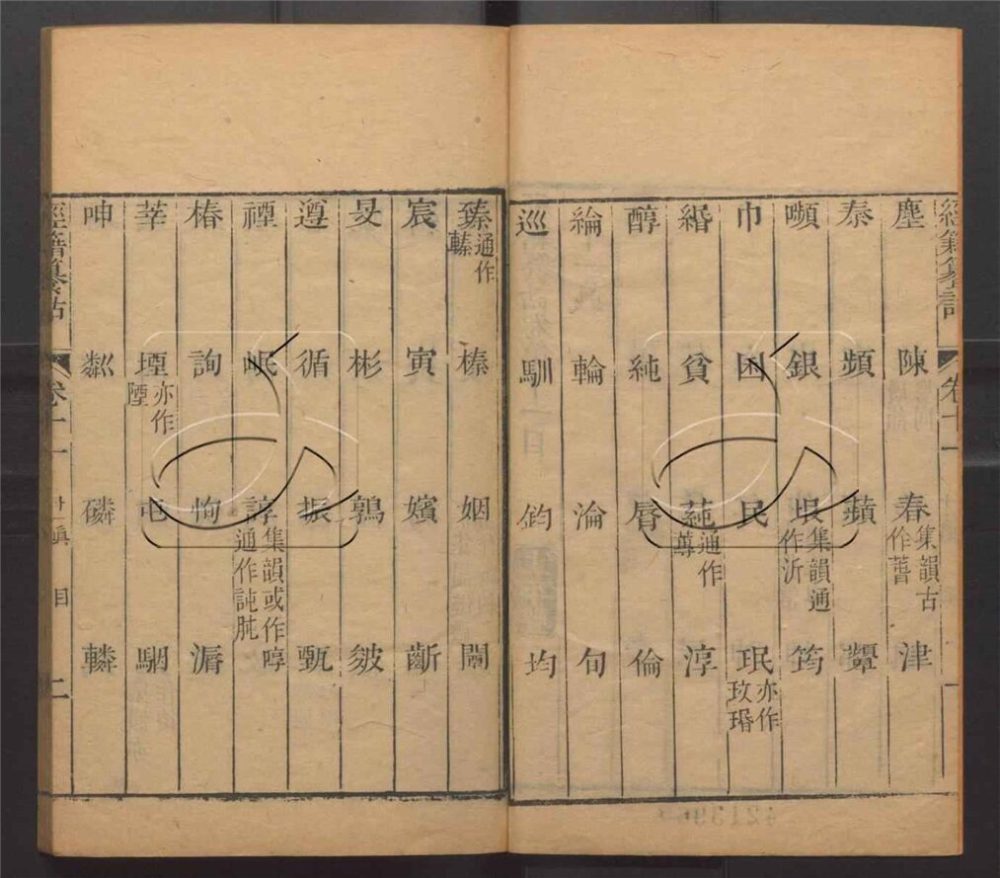 經籍纂詁 卷十一 一
塵 陳 春集韻古作萅 津
秦 頻 蘋 顰
嚬 銀 垠集韻通作沂 筠
巾 囷 民 珉亦作玟瑉
緡 貧 蓴通作蒓 淳
醇 純 脣 倫
綸 輪 淪 旬
巡 馴 鈞 均
臻通作轃 榛 姻 闉
宸 寅 嬪 齗
旻 彬 鶉 皴
遵 循 振 甄
禋 岷 諄集韻或作啍通作訰肫
椿 詢 恂 漘
莘 堙亦作陻 屯 駰
呻 粼 磷 轔
經籍纂詁 卷十一 十一眞 目 二